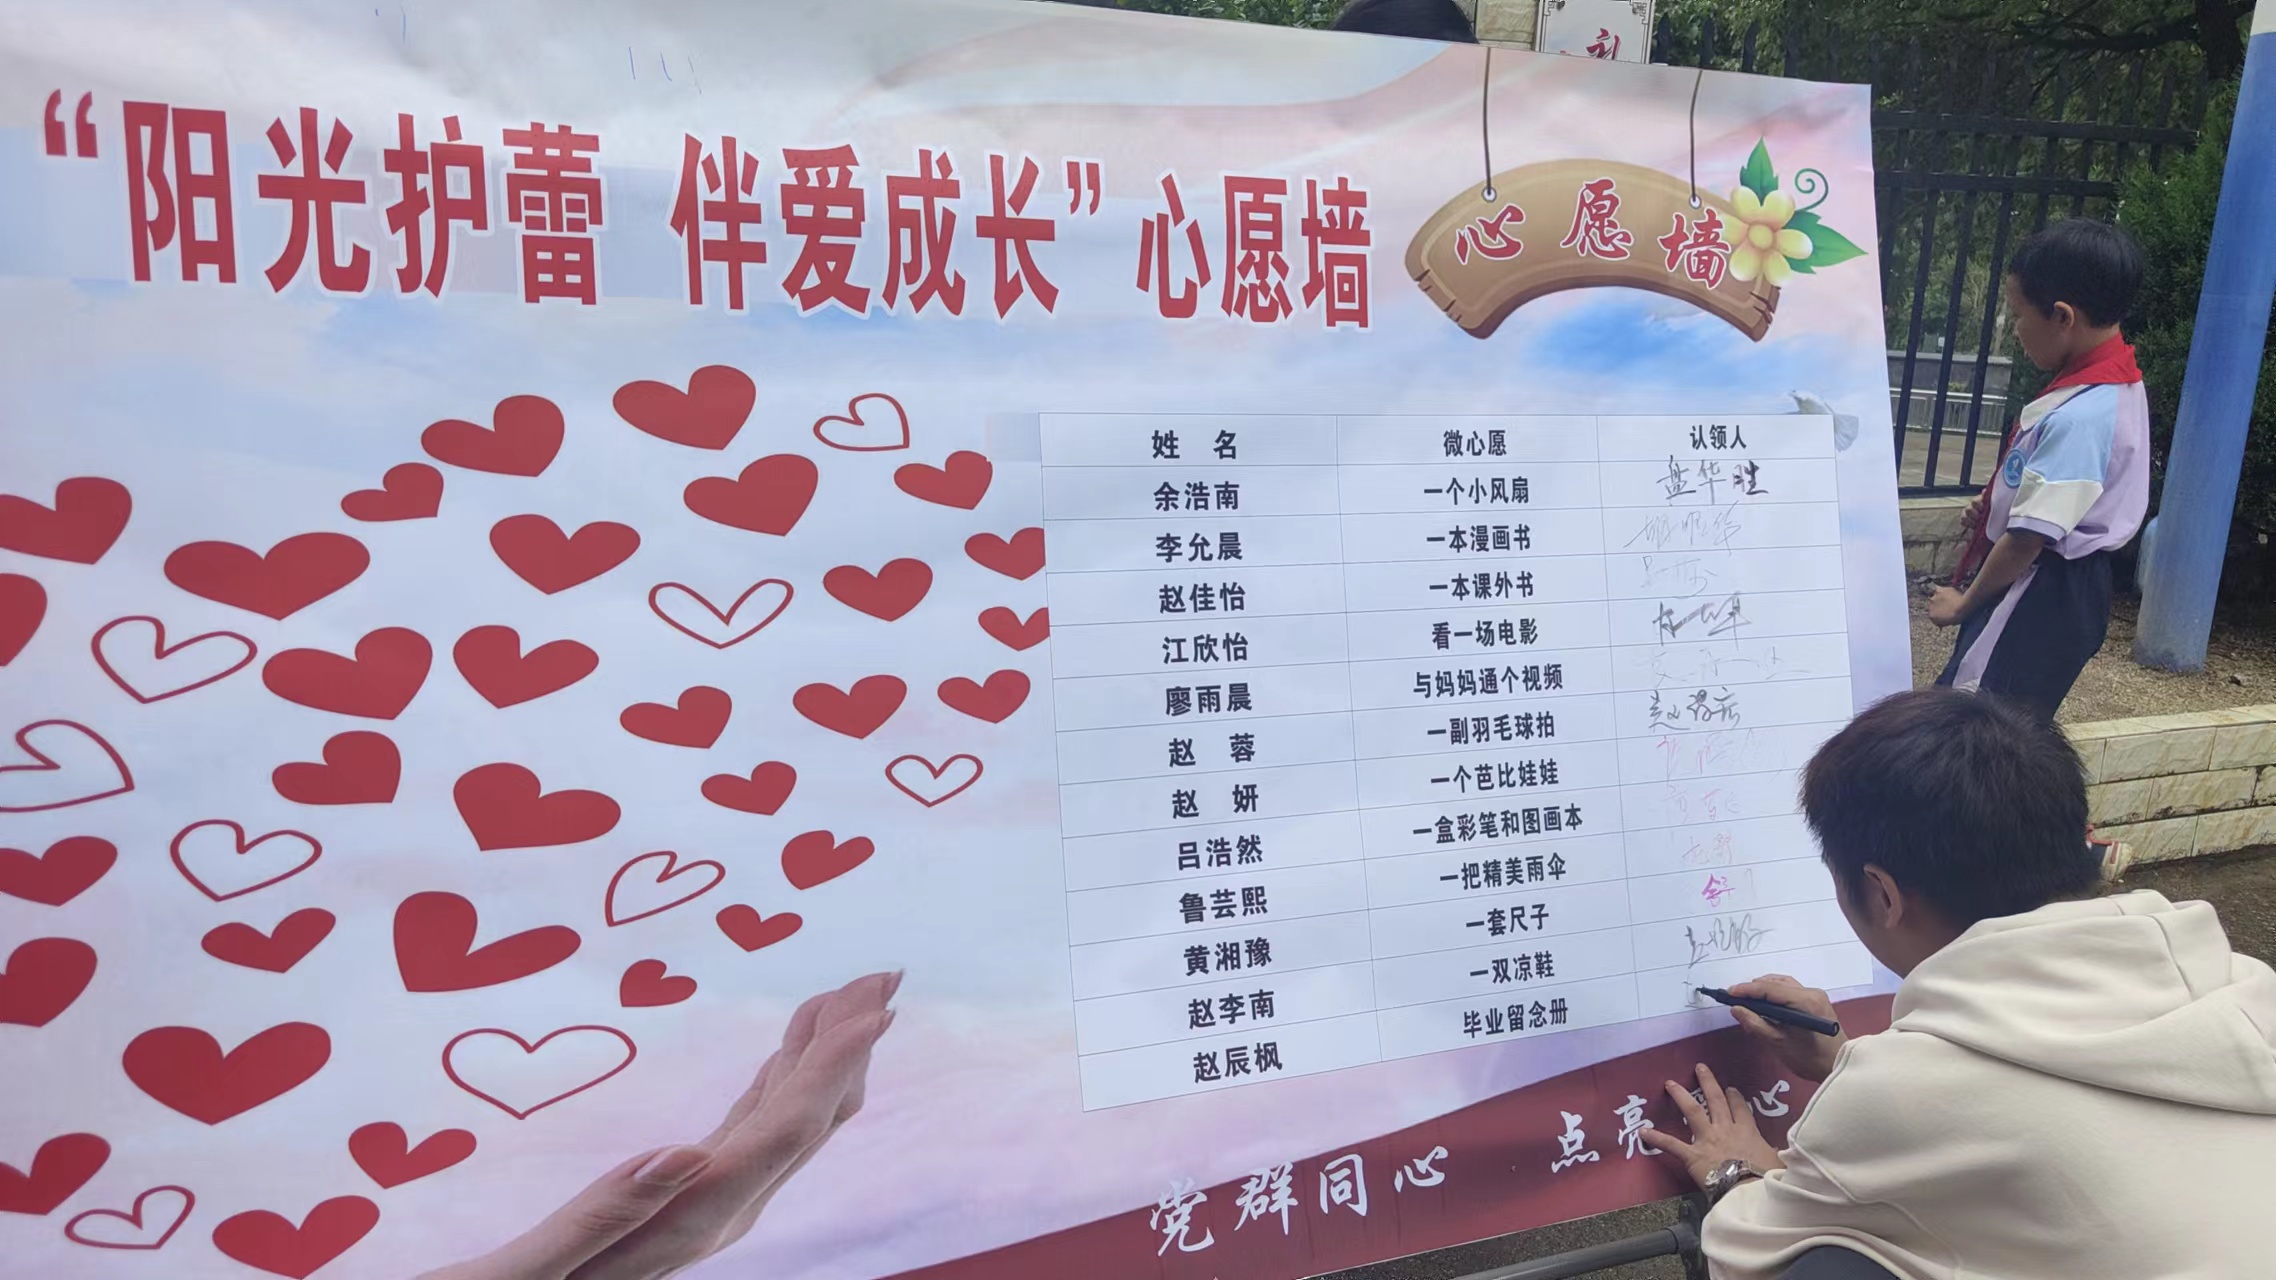 礼
“阳光护蕾 伴爱成长”心愿墙
心愿墙
姓 名 微心愿 认领人
余浩南 一个小风扇 盘华胜
李允晨 一本漫画书
赵佳怡 一本课外书
江欣怡 看一场电影
廖雨晨 与妈妈通个视频
赵 蓉 一副羽毛球拍
赵 妍 一个芭比娃娃
吕浩然 一盒彩笔和图画本
鲁芸熙 一把精美雨伞
黄湘豫 一套尺子
赵李南 一双凉鞋
赵辰枫 毕业留念册
党群同心 点亮 心